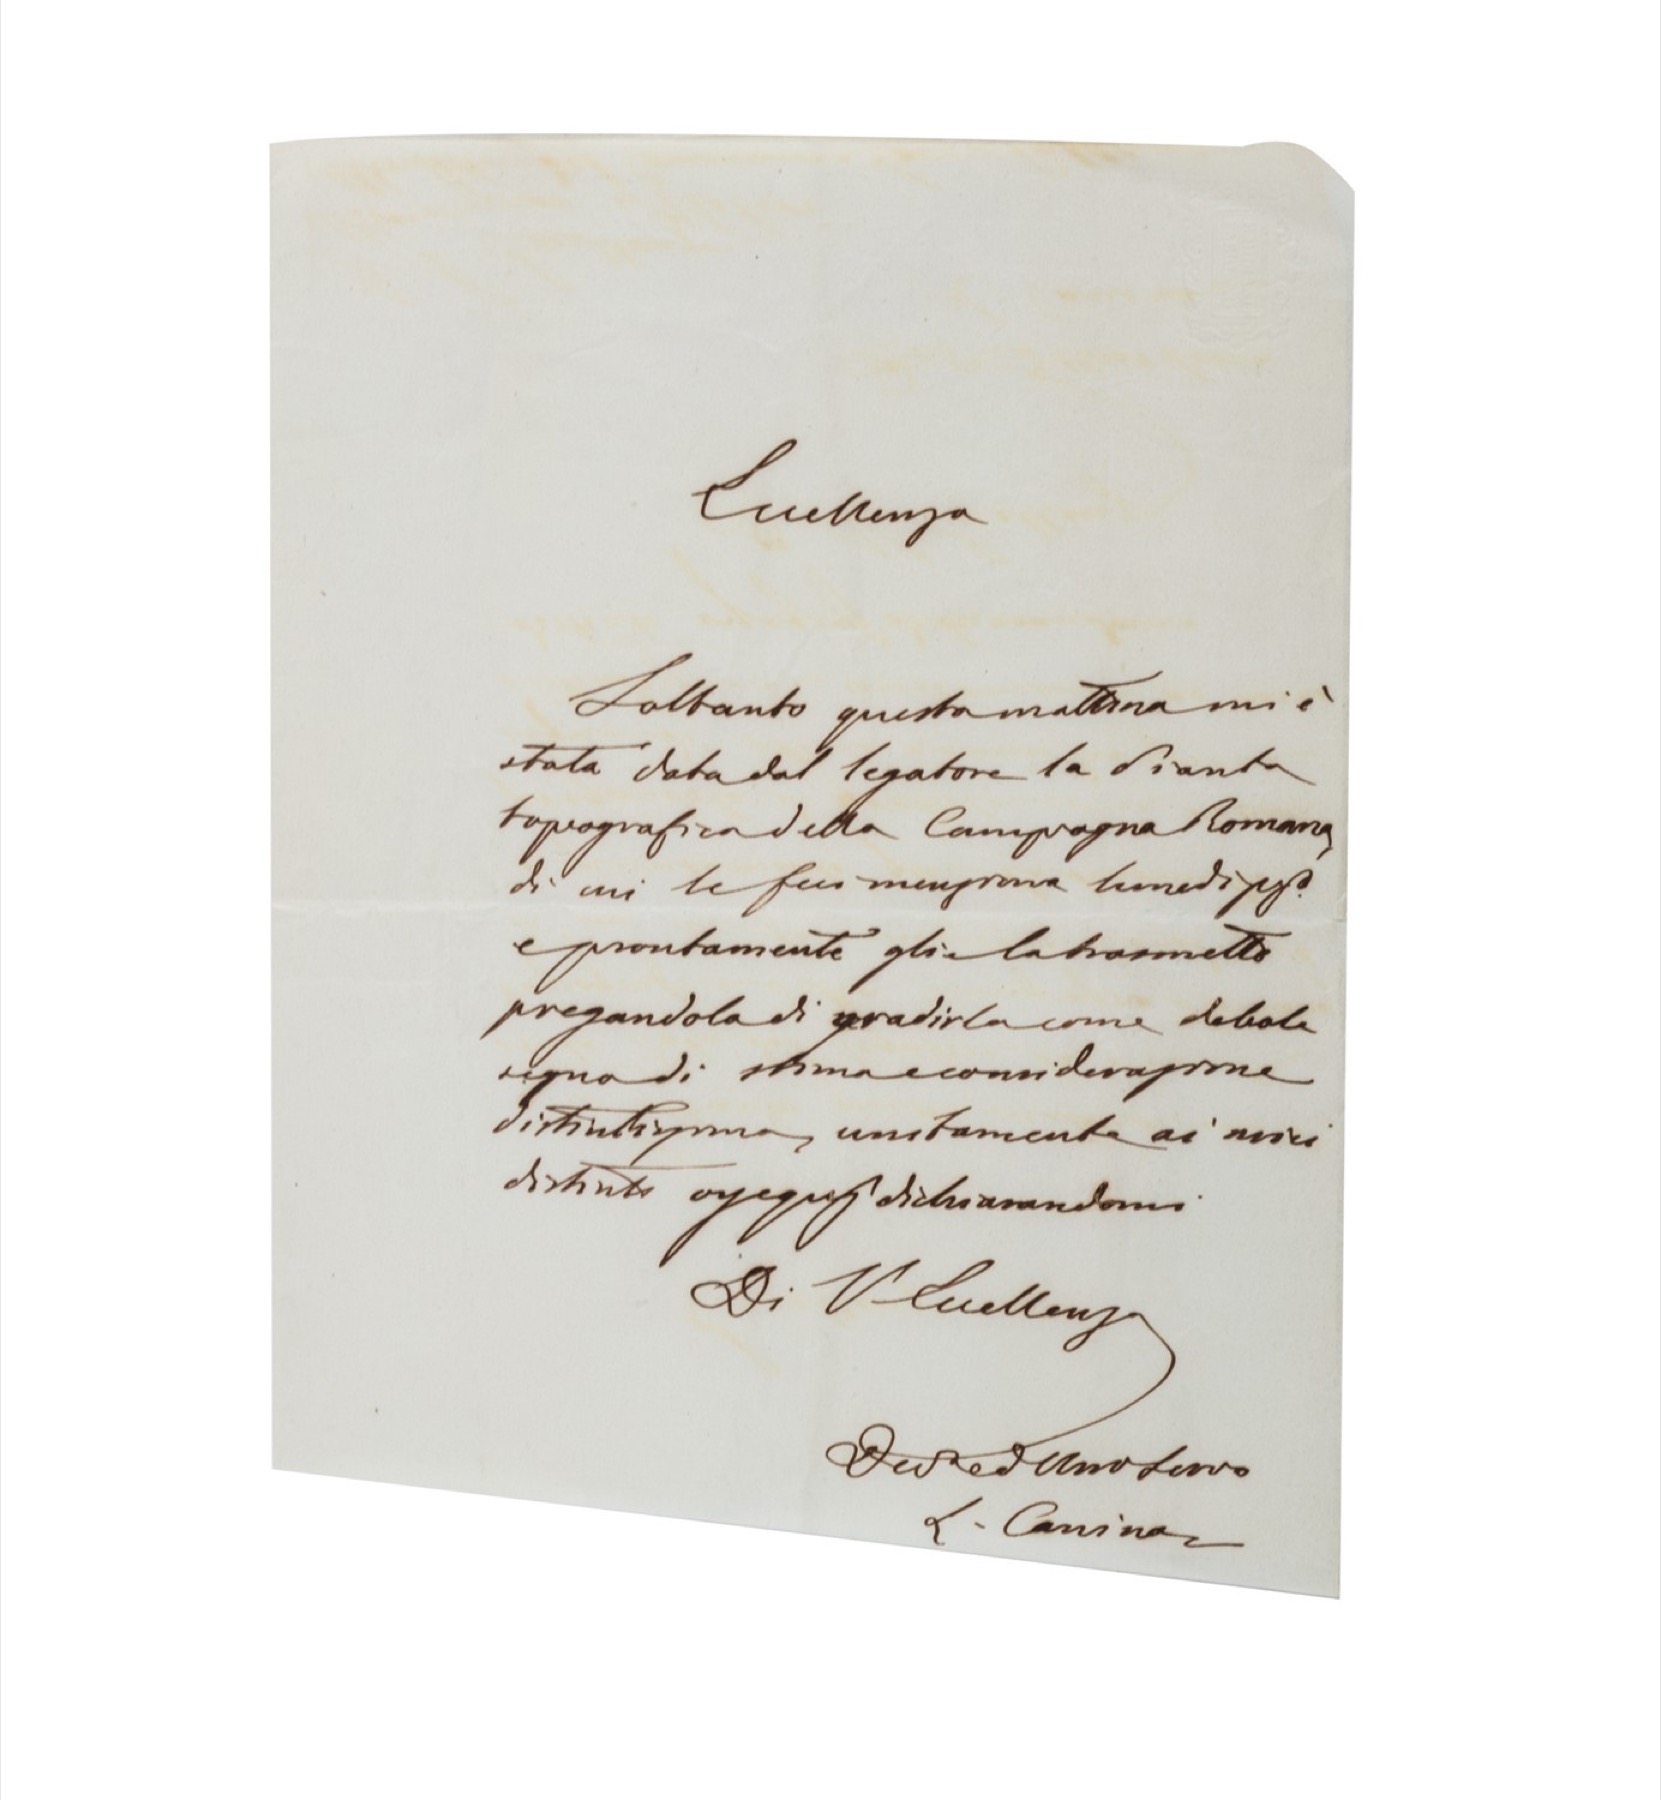 Eccellenza
Soltanto questa mattina mi è
stata data dal legatore la Pianta
topografica della Campagna Romana,
di cui le feci menzione lunedi pp°
e prontamente glie la trasmetto
pregandola di gradirla come debole
segno di stima e considerazione
distintissima, unitamente ai miei
distinti ossequj dichiarandomi
Di V Eccellenza
Dev° ed Umo Servo
L. Canina